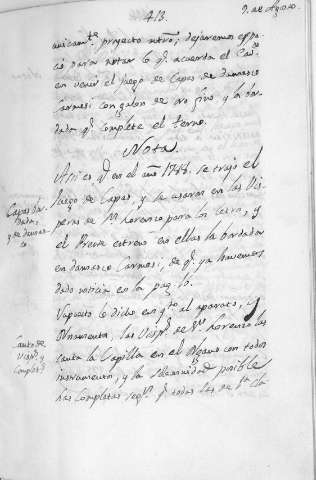 413.
9. de Agosto.
unicam.te proyecto nro, dejaremos espa
cio para notar lo q.e acuerda el Cav.o
en venir el juego de Capas de damasco
Carmesi con galon de oro fino y la bor
dada q.e complete el terno.
Nota.
Asi es q.e en el año 1788. se trajo el
juego de Capas, y se usaron en las Vis
peras de S.n Lorenzo para los Cetros, y
el Preste estreno en ellas la bordada
en damasco Carmesi, de q.e ya havemos
dado noticia en la pag. 10.
Capas bor
dada,
y de damas
co
Supuesto lo dicho en q.to al aparato, y
Ornamento, las Visp.s de S.n Lorenzo las
canta la Capilla en el Organo con todos
instrumentos, y la solemnidad posible
Las Completas seg.n q.e todas las de 1.a cla
Canto de
Visp.s y
Completas